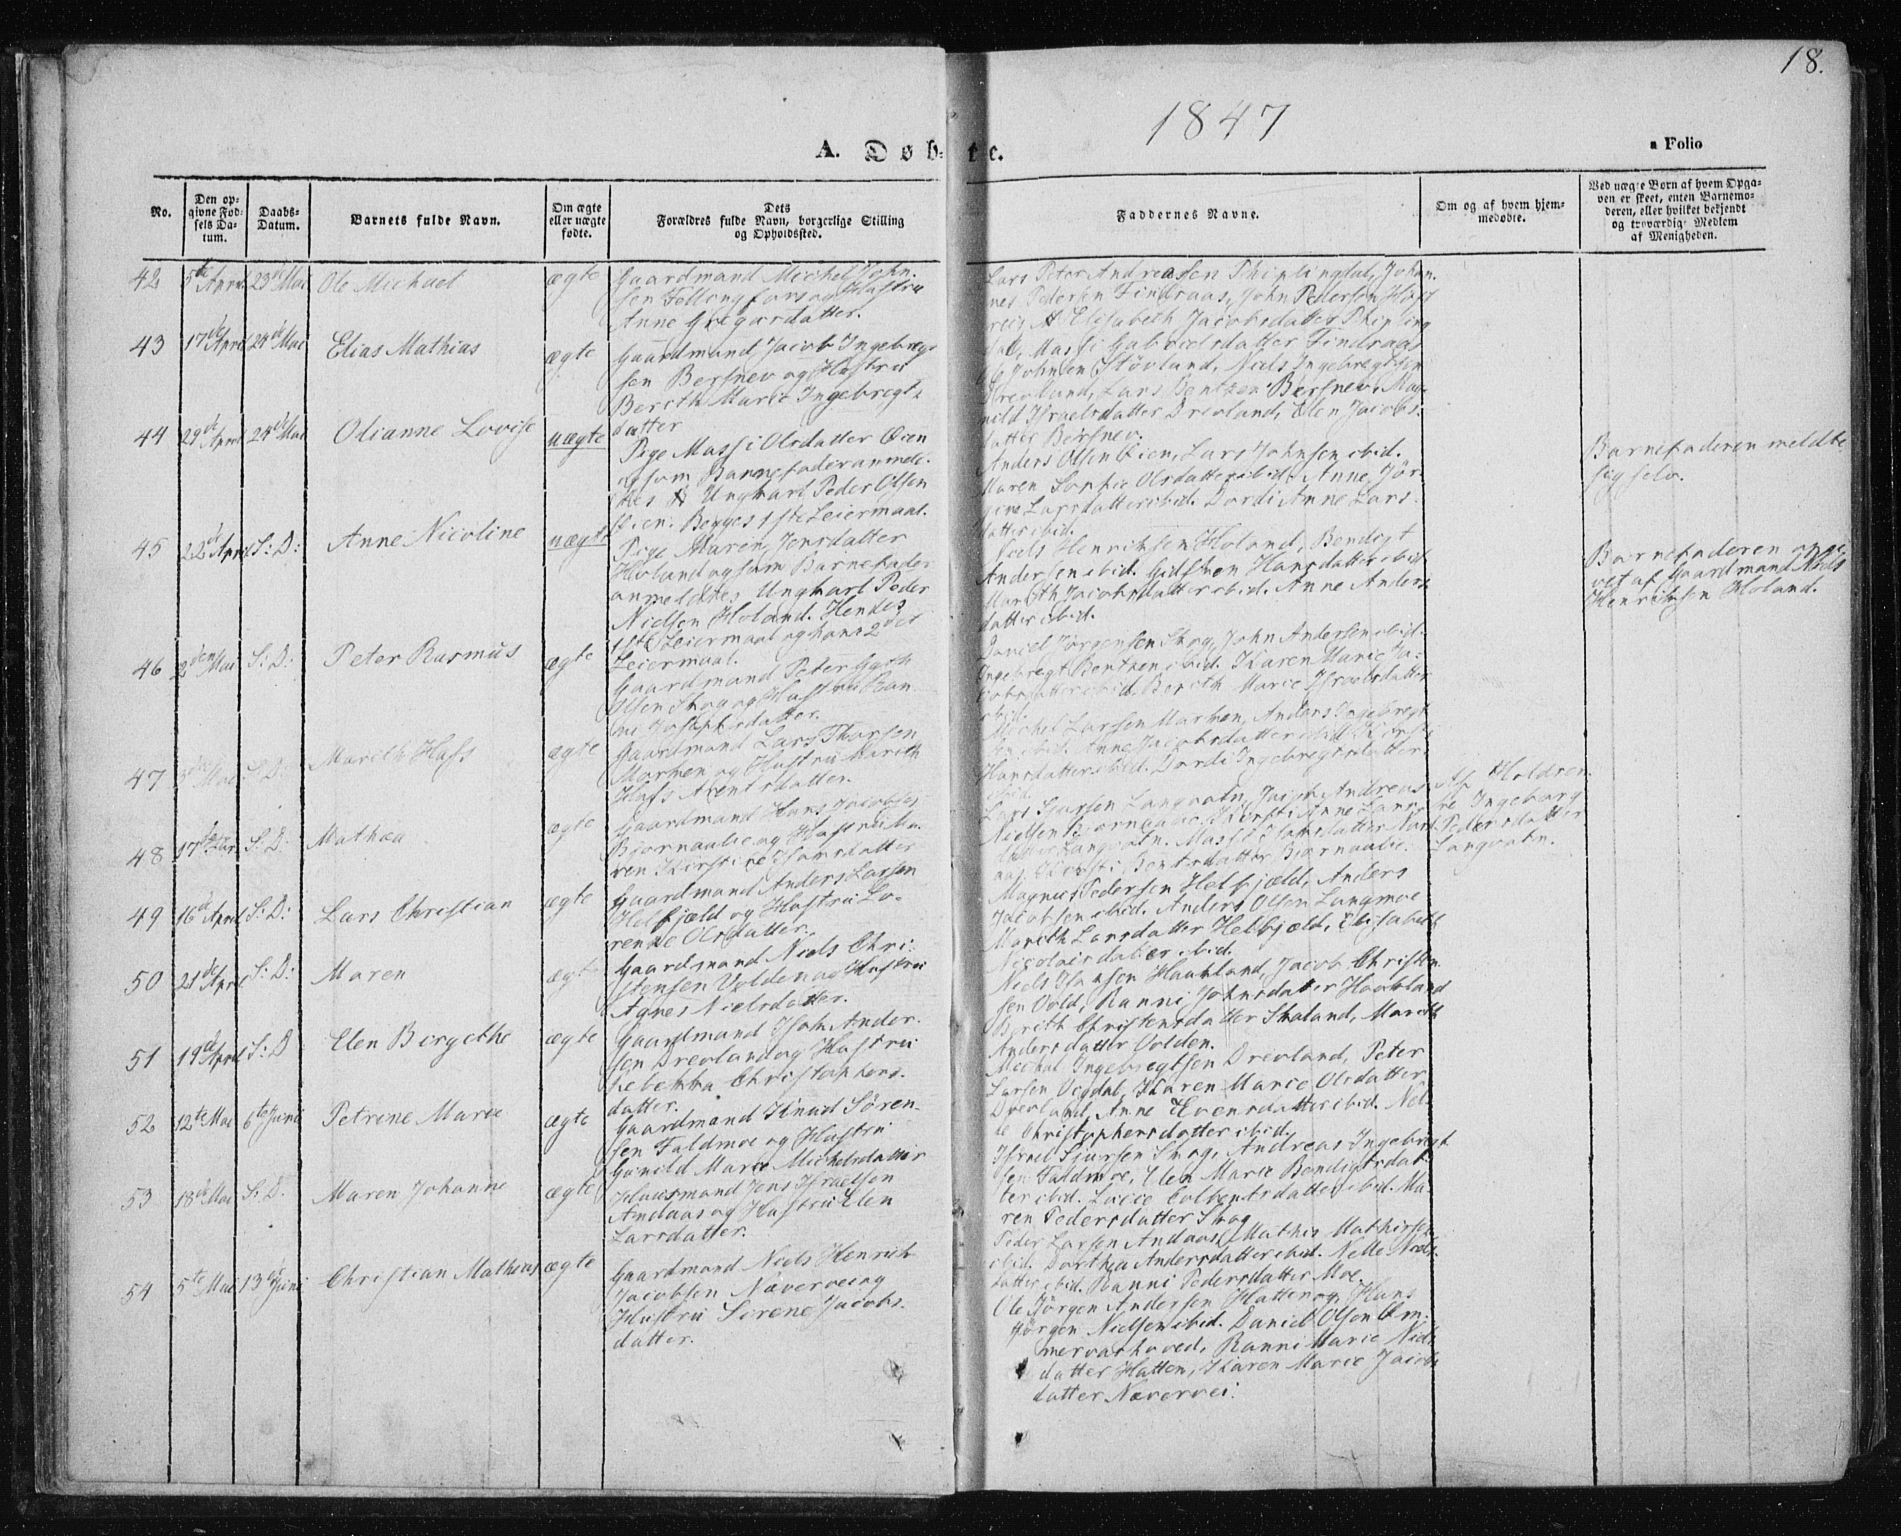 18.
1847
A. Døbte.
a Folio
No.
Den opgivne Fødsels Datum.
Daabs-Datum.
Barnets fulde Navn.
Om ægte eller uægte fødte.
Dets Forældres fulde Navn, borgerlige Stilling og Opholdssted.
Faddernes Navne.
Om og af hvem hjemmedøbte.
Ved uægte Børn af hvem Opgaven er skeet, enten Barnemoderen, eller hvilket bekjendt og troværdig Medlem af Menigheden.
42 5te April 23de Mai Ole Michael ægte
Gaardmand Michel John-
sen og Hustru
Anne Gregersdatter.
Lars Peter Andreassen Johan-
nes Pedersen Findraas, John Pedersen
Elisabeth Jacobsdatter
Massi Gabrielsdatter Findraas
43 17de April 24de Mai Elias Mathias ægte
Gaardmand Jacob Ingebregt-
sen Bersnev og Hustru
Bereth Marie Ingebregts
datter
Johnsen Støvland, Niels Ingebregtsen
Drevland, Lars Bentzen Bersnev, Mag-
nild Israelsdatter Drevland, Elen Jacobs-
datter Bersnev.
44 29de April 24de Mai Olianne Lovise uægte
Pige Massi Olsdatter Øien
og som Barnefader anmeld-
tes Ungkarl Peder Olsen
Øien. Begges 1ste Leiermaal.
Anders Olsen Øien, Lars Johnsen ibid.
Maren Sophie Olsdatter ibid. Anne Jør-
gine Larsdatter ibid. Dordi Anne Lars-
datter ibid.
Barnefaderen meldte
sig selv.
45 22de April S: D: Anne Nicoline uægte
Pige Maren Jensdatter
Holand og som Barnefader
anmeldtes Ungkarl Peder
Nielsen Holand. Hendes
1ste Leiermaal og hans 2det
Leiermaal.
Niels Henriksen Holand, Bendigt
Andersen ibid. Hansdatter ibid
Mareth Jacobsdatter ibid. Anne Anders-
datter ibid.
Barnefaderen opgi-
vet af Gaardmand Niels
Henriksen Holand.
46 2den Mai S: D: Peter Rasmus ægte
Gaardmand Peter
Olsen Skog og Hustru Ran-
ni Josephsdatter.
Daniel Jørgensen Skog, John Andersen ibid.
Ingebregt Bentzen ibid. Karen Marie Ja-
cobsdatter ibid. Berith Marie Israelsdatter
ibid.
47 Mai S: D: Mareth Hass ægte
Gaardmand Lars Thorsen
Marken og Hustru Mareth
Hass
Michel Larsen Marken, Anders Ingebregt-
sen ibid. Anne Jacobsdatter ibid. Kirsti
Hansdatter ibid. Dordi Ingebregtsdatter
ibid.
48 17de S: D: Mathea ægte
Gaardmand Hans Jacobsen
Bjørnaalie og Hustru Ma-
ren Kirstine Hansdatter
Lars Langvatn, Andreas
Nielsen Bjørnaalie, Kirsti Anne Lars-
datter Langvatn. Massi
Kirsti Bentsdatter Bjørnaalie.
Af
Ingeborg
Pedersdatter
Langvatn.
49 16de April S: D: Lars Christian ægte
Gaardmand Anders Larsen
Helfjeld og Hustru Lo-
rense Olsdatter.
Magnus Pedersen Helfjeld, Anders
Jacobsen ibid. Anders Olsen Langmoe
Mareth Larsdatter Helfjeld, Elisabeth
Nicolaisdatter ibid.
50 21de April S: D: Maren ægte
Gaardmand Niels Chri-
stensen Volden og Hustru
Agnes Nielsdatter.
Niels Haakland, Jacob Christen-
sen Vold, Ranni Johnsdatter Haakland
Berith Christensdatter Skaland, Mareth
Andersdatter Volden.
51 19de April S: D Elen Birgethe ægte
Gaardmand Ander-
sen Drevland og Hustru
Rebekka Christophers-
datter.
Michel Ingebregtsen Drevland, Peter
Larsen Vegdal, Karen Marie Olsdatter
Drevland, Anne Evensdatter ibid. Nel-
le Christophersdatter ibid.
52 12te Mai 6te Juni Petrene Marie ægte
Gaardmand Knud Søren-
sen Faldmoe og Hustru
Gunild Marie Michelsdatter
Israel Sjursen Skog, Andreas Ingebregt
sen Faldmoe, Elen Marie Bendigtsdat-
ter ibid. ibid. Ma-
ren Pedersdatter Skog
53 18de Mai S: D. Maren Johanne ægte
Huusmand Jens Israelsen
Andaas og Hustru Elen
Larsdatter.
Peder Larsen Andaas, Mathis Mathissen
ibid. Dorthea Andersdatter ibid. Nelle Niels-
datter ibid. Ranni Pedersdatter Moe.
54 5te Mai 13de Juni Christian Mathias ægte
Gaardmand Niels Henrik
Jacobsen Næverveiog
Hustru Serene Jacobs-
datter.
Ole Jørgen Andersen Hatten og Hans
Jørgen Nielsen ibid. Daniel Olsen Em-
mervashoved, Ranni Marie Niels-
datter Hatten, Karen Marie Jacobs
datter Nævervei.